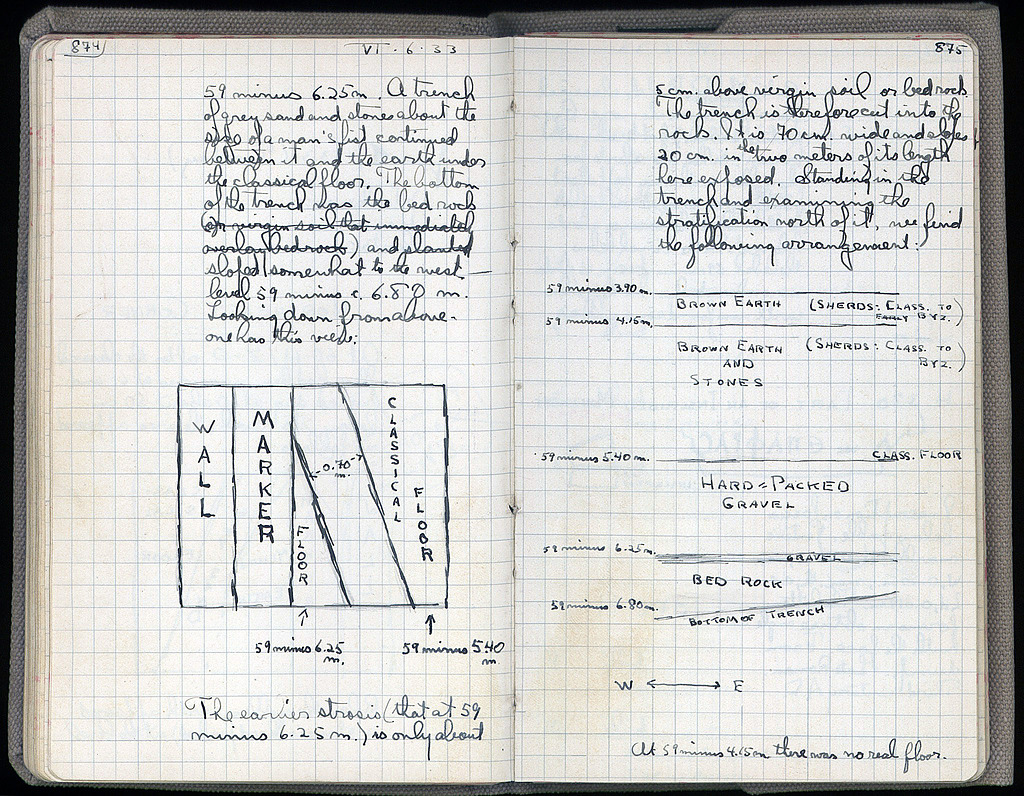 874
VI · 6 · 33
59 minus 6.25 m. A trench
of grey sand and stones about the
size of a man's fist continued
between it and the earth under
the classical floor. The bottom
of the trench was the bed rock
(or virgin soil that immediately
overlay bedrock) and slanted
sloped somewhat to the west —
level 59 minus c. 6.80 m.
Looking down from above -
one has this view:
WALL
MARKER
FLOOR
0.70 m.
CLASSICAL
FLOOR
59 minus 6.25
m.
59 minus 5.40
m.
The earlier strosis (that at 59
minus 6.25 m.) is only about
875
5 cm. above virgin soil or bedrock.
The trench is therefore cut into the
rock. It is 70 cm. wide and slopes
20 cm. in the two meters of its length
here exposed. Standing in the
trench and examining the
stratification north of it, we find
the following arrangement:
59 minus 3.90 m.
BROWN EARTH (SHERDS: CLASS. TO
EARLY BYZ.)
59 minus 4.15 m.
BROWN EARTH (SHERDS: CLASS. TO
AND BYZ.)
STONES
59 minus 5.40 m.
CLASS. FLOOR
HARD-PACKED
GRAVEL
59 minus 6.25 m.
GRAVEL
BED ROCK
59 minus 6.80 m.
BOTTOM OF TRENCH
W ↔ E
At 59 minus 4.15 m there was no real floor.